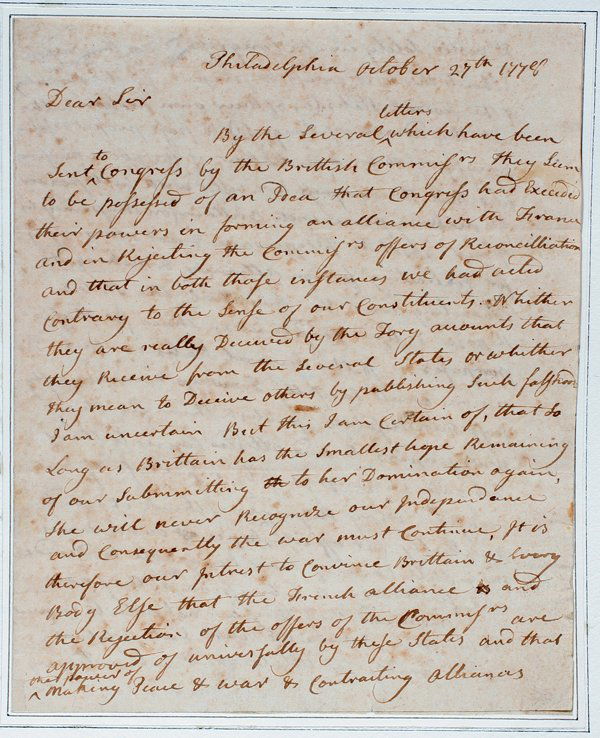 Philadelphia October 27th 1778
Dear Sir
letters
By the Several ^ which have been
Sent ^to Congress by the Brittish Commissrs They Seem
to be possessed of an Idea that Congress had Exceeded
their powers in forming an alliance with France
and in Rejecting the Commissrs offers of Reconcilliation
and that in both those instances we had acted
Contrary to the Sense of our Constituents. Whither
they are really Deceived by the Tory accounts that
they Receive from the Several States or whether
they mean to Deceive others by publishing Such falshoods
I am uncertain But this I am Certain of, that So
Long as Brittain has the Smallest hope Remaining
of our Submmetting th to her Domination again,
She will never Recognize our Independance
and Consequently the war must Continue, It is
therefore our Intrest to Convince Brittain & Every
Body Else that the French alliance & and
the Rejection of the offers of the Commissrs are
approved of universally by these States and that
the power of
^ Making Peace & war & Contracting alliances